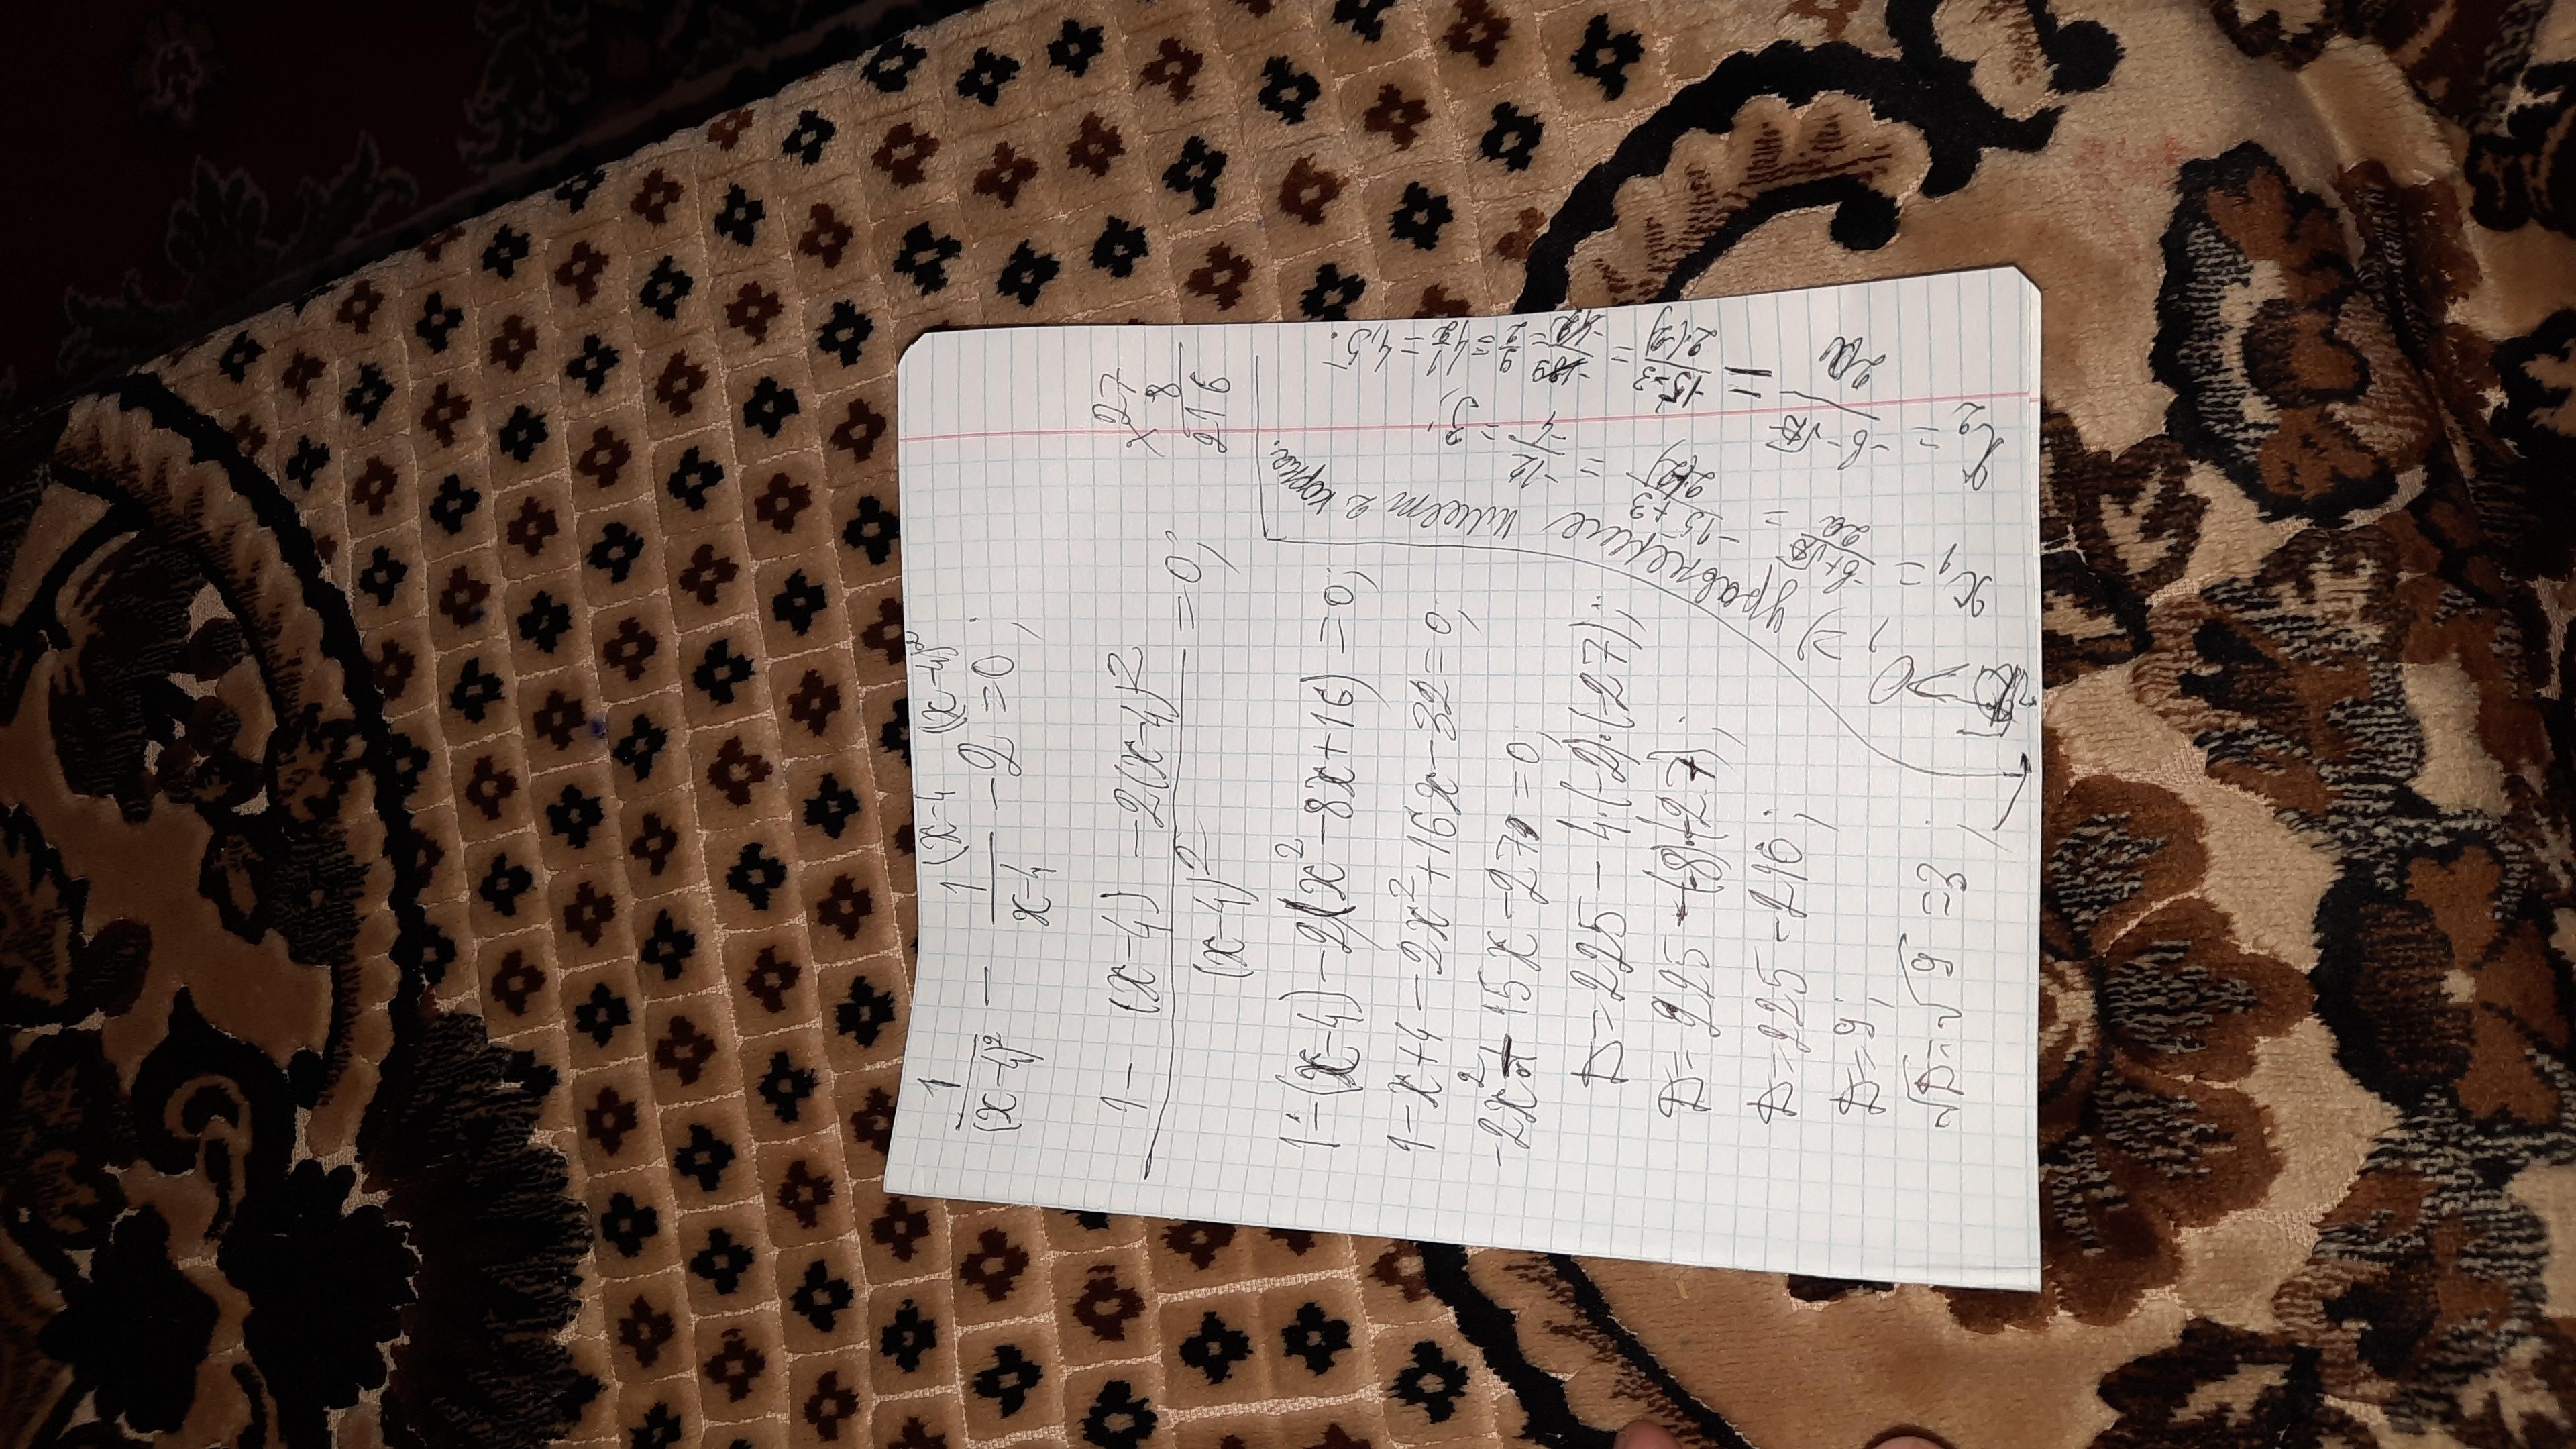 1 (x-4 (x-4)²
1/(x-4)² - 1/(x-4) - 2 = 0;
(1 - (x-4) - 2(x-4)²)/(x-4)² = 0;
×27
8
216
1-(x-4)-2(x²-8x+16)=0;
1-x+4-2x²+16x-32=0;
-2x²+15x-27=0;
D=225-4·(-2)·(-27);
D=225-(-8)·(-27);
D=225-216;
D=9;
√D=√9=3
D>0, уравнение имеет 2 корня.
x₁ = (-b+√D)/2a = (-15+3)/(2·(-2)) = -12/-4 = 3;
x₂ = (-b-√D)/2a =
= (-15-3)/(2·(-2)) = -18/-4 = 9/2 = 4 1/2 = 4,5.